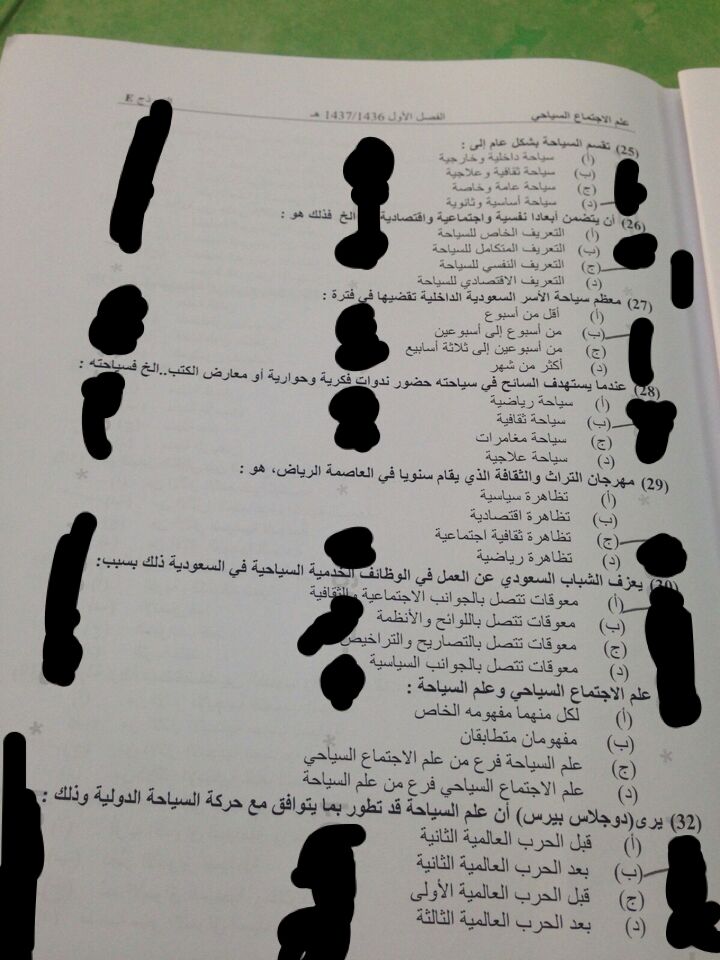 علم الاجتماع السياحي الفصل الأول 1437/1436 هـ E
(25) تقسم السياحة بشكل عام إلى :
(أ) سياحة داخلية وخارجية
(ب) سياحة ثقافية وعلاجية
(ج) سياحة عامة وخاصة
(د) سياحة أساسية وثانوية
(26) أن يتضمن أبعادا نفسية واجتماعية واقتصادية الخ فذلك هو :
(أ) التعريف الخاص للسياحة
(ب) التعريف المتكامل للسياحة
(ج) التعريف النفسي للسياحة
(د) التعريف الاقتصادي للسياحة
(27) معظم سياحة الأسر السعودية الداخلية تقضيها في فترة :
(أ) أقل من أسبوع
(ب) من أسبوع إلى أسبوعين
(ج) من أسبوعين إلى ثلاثة أسابيع
(د) أكثر من شهر
(28) عندما يستهدف السائح في سياحته حضور ندوات فكرية وحوارية أو معارض الكتب..الخ فسياحته :
(أ) سياحة رياضية
(ب) سياحة ثقافية
(ج) سياحة مغامرات
(د) سياحة علاجية
(29) مهرجان التراث والثقافة الذي يقام سنويا في العاصمة الرياض، هو :
(أ) تظاهرة سياسية
(ب) تظاهرة اقتصادية
(ج) تظاهرة ثقافية اجتماعية
(د) تظاهرة رياضية
(30) يعزف الشباب السعودي عن العمل في الوظائف الخدمية السياحية في السعودية ذلك بسبب:
(أ) معوقات تتصل بالجوانب الاجتماعية والثقافية
(ب) معوقات تتصل باللوائح والأنظمة
(ج) معوقات تتصل بالتصاريح والتراخيص
(د) معوقات تتصل بالجوانب السياسية
علم الاجتماع السياحي وعلم السياحة :
(أ) لكل منهما مفهومه الخاص
(ب) مفهومان متطابقان
(ج) علم السياحة فرع من علم الاجتماع السياحي
(د) علم الاجتماع السياحي فرع من علم السياحة
(32) يرى(دوجلاس بيرس) أن علم السياحة قد تطور بما يتوافق مع حركة السياحة الدولية وذلك :
(أ) قبل الحرب العالمية الثانية
(ب) بعد الحرب العالمية الثانية
(ج) قبل الحرب العالمية الأولى
(د) بعد الحرب العالمية الثالثة